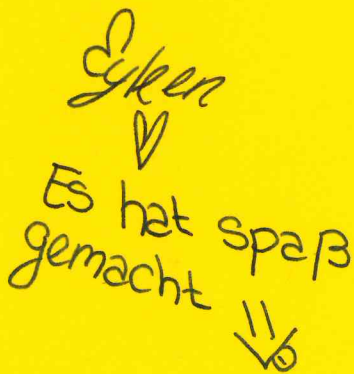 Eyleen
Es hat spaß
gemacht